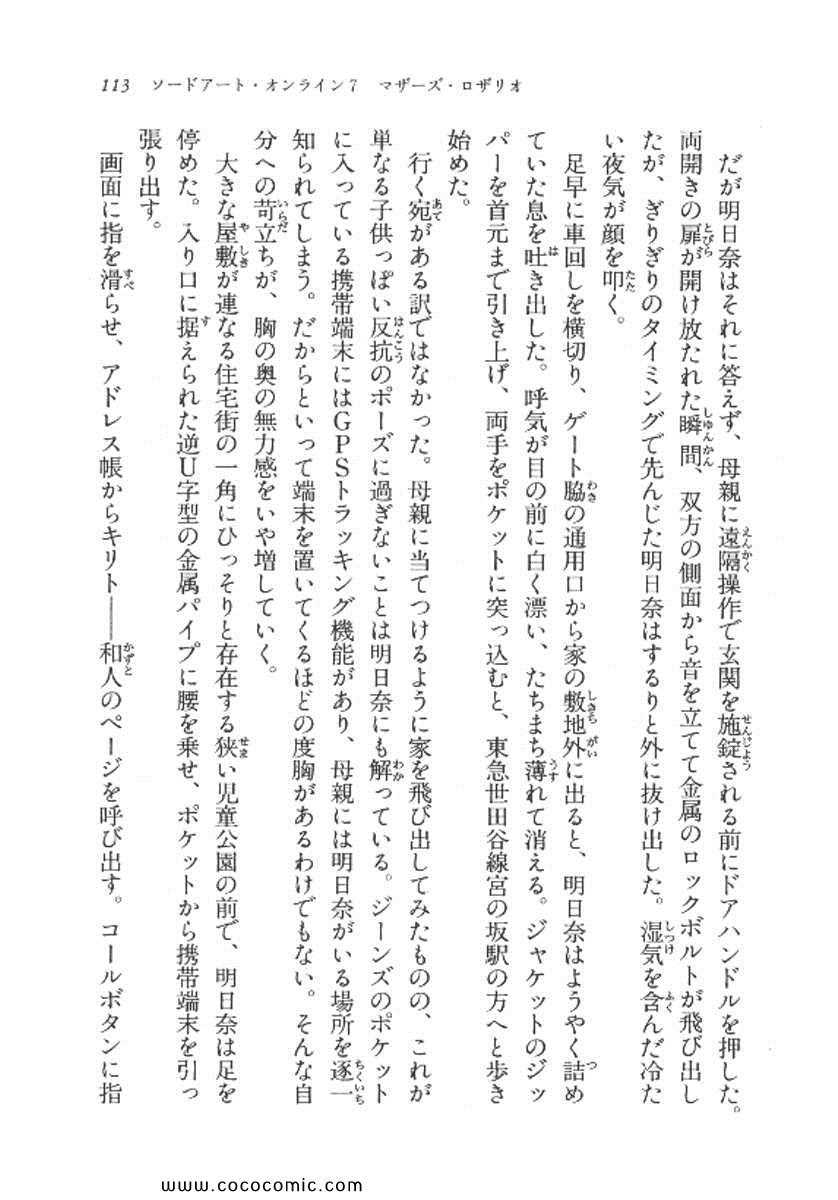 113　ソードアート・オンライン7　マザーズ・ロザリオ
　だが明日奈はそれに答えず、母親に遠隔操作で玄関を施錠される前にドアハンドルを押した。
両開きの扉が開け放たれた瞬間、双方の側面から音を立てて金属のロックボルトが飛び出し
たが、ぎりぎりのタイミングで先んじた明日奈はするりと外に抜け出した。湿気を含んだ冷た
い夜気が顔を叩く。
　足早に車回しを横切り、ゲート脇の通用口から家の敷地外に出ると、明日奈はようやく詰め
ていた息を吐き出した。呼気が目の前に白く漂い、たちまち薄れて消える。ジャケットのジッ
パーを首元まで引き上げ、両手をポケットに突っ込むと、東急世田谷線宮の坂駅の方へと歩き
始めた。
　行く宛がある訳ではなかった。母親に当てつけるように家を飛び出してみたものの、これが
単なる子供っぽい反抗のポーズに過ぎないことは明日奈にも解っている。ジーンズのポケット
に入っている携帯端末にはGPSトラッキング機能があり、母親には明日奈がいる場所を逐一
知られてしまう。だからといって端末を置いてくるほどの度胸があるわけでもない。そんな自
分への苛立ちが、胸の奥の無力感をいや増していく。
　大きな屋敷が連なる住宅街の一角にひっそりと存在する狭い児童公園の前で、明日奈は足を
停めた。入り口に据えられた逆U字型の金属パイプに腰を乗せ、ポケットから携帯端末を引っ
張り出す。
　画面に指を滑らせ、アドレス帳からキリト──和人のページを呼び出す。コールボタンに指
www.cococomic.com